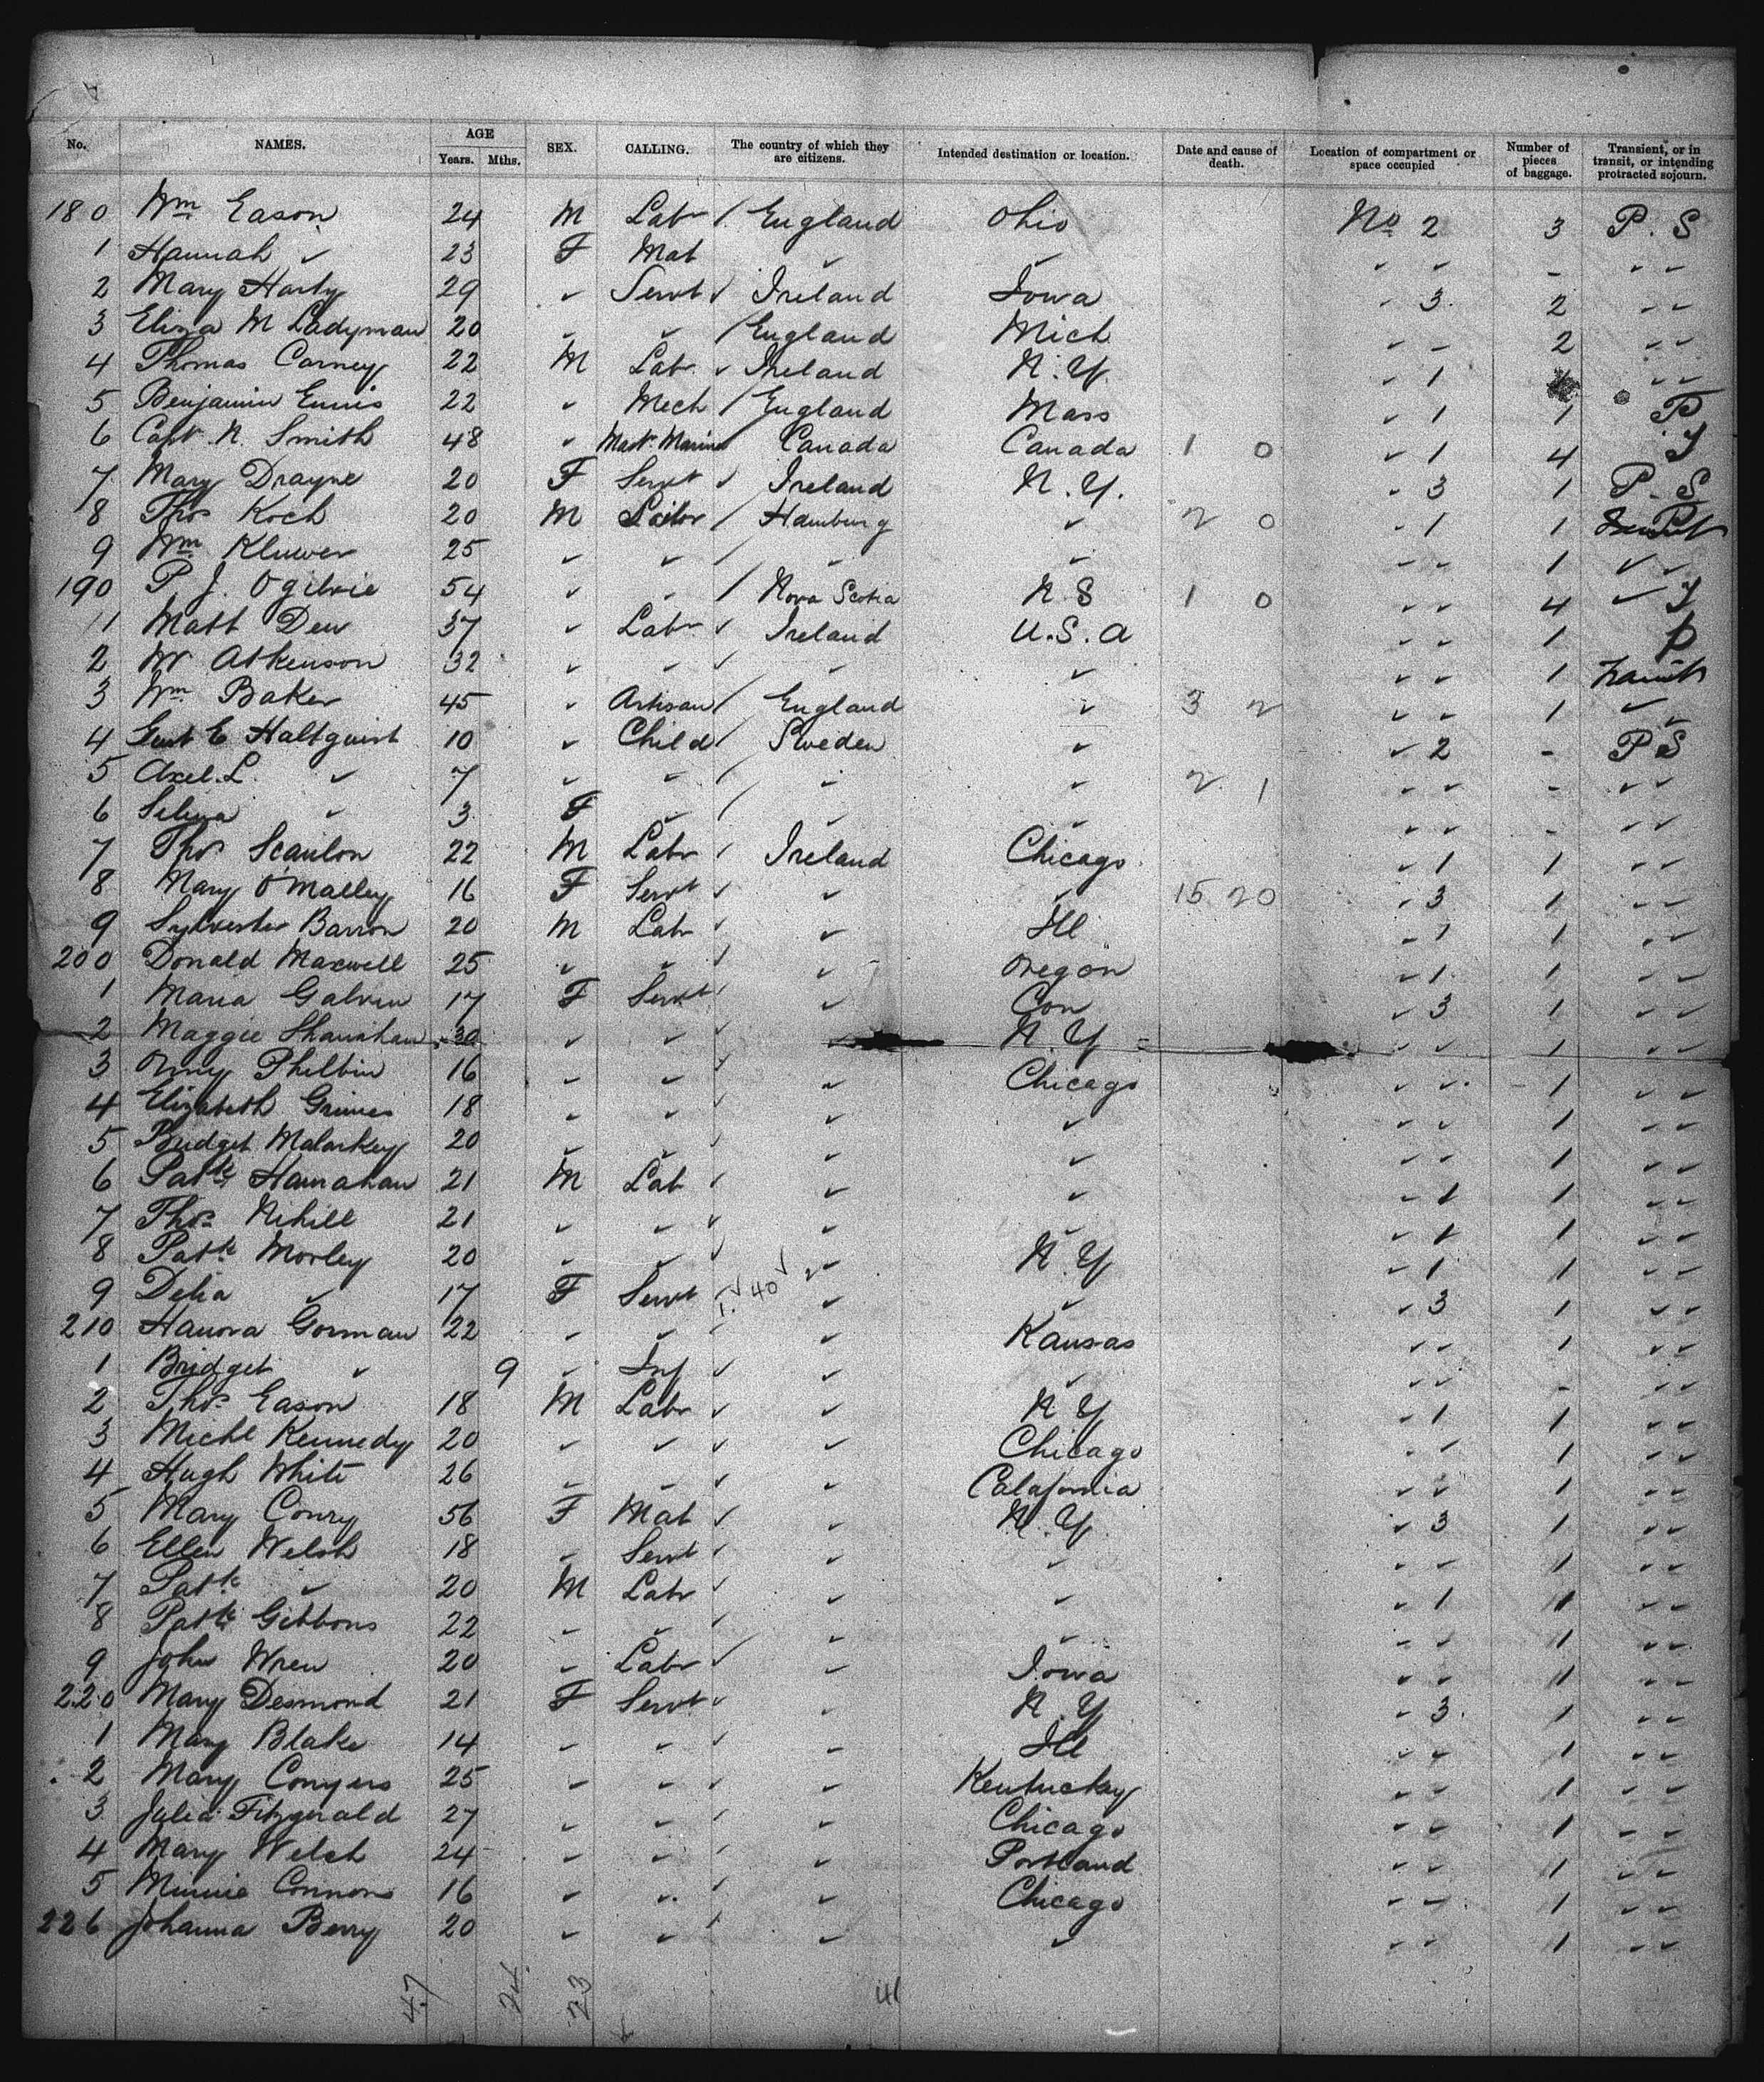 No. NAMES. AGE Years. Mths. SEX. CALLING. The country of which they are citizens. Intended destination or location. Date and cause of death. Location of compartment or space occupied Number of pieces of baggage. Transient, or in transit, or intending protracted sojourn.
180 Wm Eason 24 M Labr / England Ohio No 2 3 P. S
1 Hannah ✓ 23 F Mat ✓ ✓ ✓ ✓ - ✓ ✓
2 Mary Harty 29 ✓ Servt ✓ Ireland Iowa ✓ 3 2 ✓ ✓
3 Eliza M Ladyman 20 ✓ ✓ / England Mich ✓ - 2 ✓ ✓
4 Thomas Carney 22 M Lab. ✓ Ireland N.Y. ✓ 1 ✓ ✓
5 Benjamin Ennis 22 ✓ Mech / England Mass ✓ 1 1 P
6 Capt. N. Smith 48 ✓ Mastr Marine Canada Canada 1 0 ✓ 1 4 T
7 Mary Drayne 20 F Servt ✓ Ireland N.Y. ✓ 3 1 P. S
8 Thos Koch 20 M Sailor / Hamburg ✓ 2 0 ✓ 1 1
9 Wm Kluwer 25 ✓ ✓ / ✓ ✓ ✓ ✓ 1 ✓ ✓
190 P. J. Ogilvie 54 ✓ ✓ / Nova Scotia N.S 1 0 ✓ ✓ 4 ✓ T
11 Matt Dew 37 ✓ Labr ✓ Ireland U.S.A ✓ ✓ 1 P
2 Wr Atkenson 32 ✓ ✓ ✓ ✓ ✓ ✓ ✓ 1 transit
3 Wm Baker 45 ✓ Artisan / England ✓ 3 2 ✓ ✓ 1 ✓ ✓
4 Gust E Haltquist 10 ✓ Child / Sweden ✓ ✓ 2 - P S
5 Axel. L. ✓ 7 ✓ ✓ / ✓ ✓ 2 1 ✓ ✓ - ✓ ✓
6 Selma ✓ 3 F ✓ / ✓ ✓ ✓ ✓ - ✓ ✓
7 Thos Scanlon 22 M Labr ✓ Ireland Chicago ✓ 1 1 ✓ ✓
8 Mary O'Malley 16 F Servt ✓ ✓ ✓ 15 20 ✓ 3 1 ✓ ✓
9 Sylvester Barron 20 M Labr ✓ ✓ Ill ✓ 1 1 ✓ ✓
200 Donald Maxwell 25 ✓ ✓ ✓ ✓ Oregon ✓ 1 1 ✓ ✓
1 Maria Galvin 17 F Servt ✓ ✓ Con ✓ 3 1 ✓ ✓
2 Maggie Shanahan 30 ✓ ✓ ✓ ✓ N.Y ✓ ✓ 1 ✓ ✓
3 Philbin 16 ✓ ✓ ✓ ✓ Chicago ✓ ✓ 1 ✓ ✓
4 Elizabeth Grimes 18 ✓ ✓ ✓ ✓ ✓ ✓ ✓ 1 ✓ ✓
5 Bridget Malarkey 20 ✓ ✓ ✓ ✓ ✓ ✓ ✓ 1 ✓ ✓
6 Patk Hanrahan 21 M Lab ✓ ✓ ✓ ✓ 1 1 ✓ ✓
7 Thos Nihill 21 ✓ ✓ ✓ ✓ ✓ ✓ 1 1 ✓ ✓
8 Patk Morley 20 ✓ ✓ ✓ ✓ N.Y ✓ 1 1 ✓ ✓
9 Delia ✓ 17 F Servt 1. ✓ 40 ✓ ✓ ✓ ✓ 3 1 ✓ ✓
210 Hanora Gorman 22 ✓ ✓ ✓ ✓ Kansas ✓ ✓ 1 ✓ ✓
1 Bridget ✓ 9 ✓ Inf ✓ ✓ ✓ ✓ ✓ - ✓ ✓
2 Thos Eason 18 M Labr ✓ ✓ N Y ✓ 1 1 ✓ ✓
3 Michl Kennedy 20 ✓ ✓ ✓ ✓ Chicago ✓ ✓ 1 ✓ ✓
4 Hugh White 26 ✓ ✓ ✓ ✓ Calafornia ✓ ✓ 1 ✓ ✓
5 Mary Conry 56 F Mat ✓ ✓ N.Y ✓ 3 1 ✓ ✓
6 Ellen Welsh 18 ✓ Servt ✓ ✓ ✓ ✓ ✓ 1 ✓ ✓
7 Patk ✓ 20 M Labr ✓ ✓ ✓ ✓ 1 1 ✓ ✓
8 Patk Gibbons 22 ✓ ✓ ✓ ✓ ✓ ✓ ✓ 1 ✓ ✓
9 John Wren 20 ✓ Labr ✓ ✓ Iowa ✓ ✓ 1 ✓ ✓
220 Mary Desmond 21 F Servt ✓ ✓ N.Y ✓ 3. 1 ✓ ✓
1 Mary Blake 14 ✓ ✓ ✓ ✓ Ill ✓ ✓ 1 ✓ ✓
2 Mary Conyers 25 ✓ ✓ ✓ ✓ Kentuckey ✓ ✓ 1 ✓ ✓
3 Julia Fitzgerald 27 ✓ ✓ ✓ ✓ Chicago ✓ ✓ 1 ✓ ✓
4 Mary Welsh 24 ✓ ✓ ✓ ✓ Portland ✓ ✓ 1 ✓ ✓
5 Minnie Connors 16 ✓ ✓ ✓ ✓ Chicago ✓ ✓ 1 ✓ ✓
226 Johanna Berry 20 ✓ ✓ ✓ ✓ ✓ ✓ ✓ 1 ✓ ✓
47 24 23 41